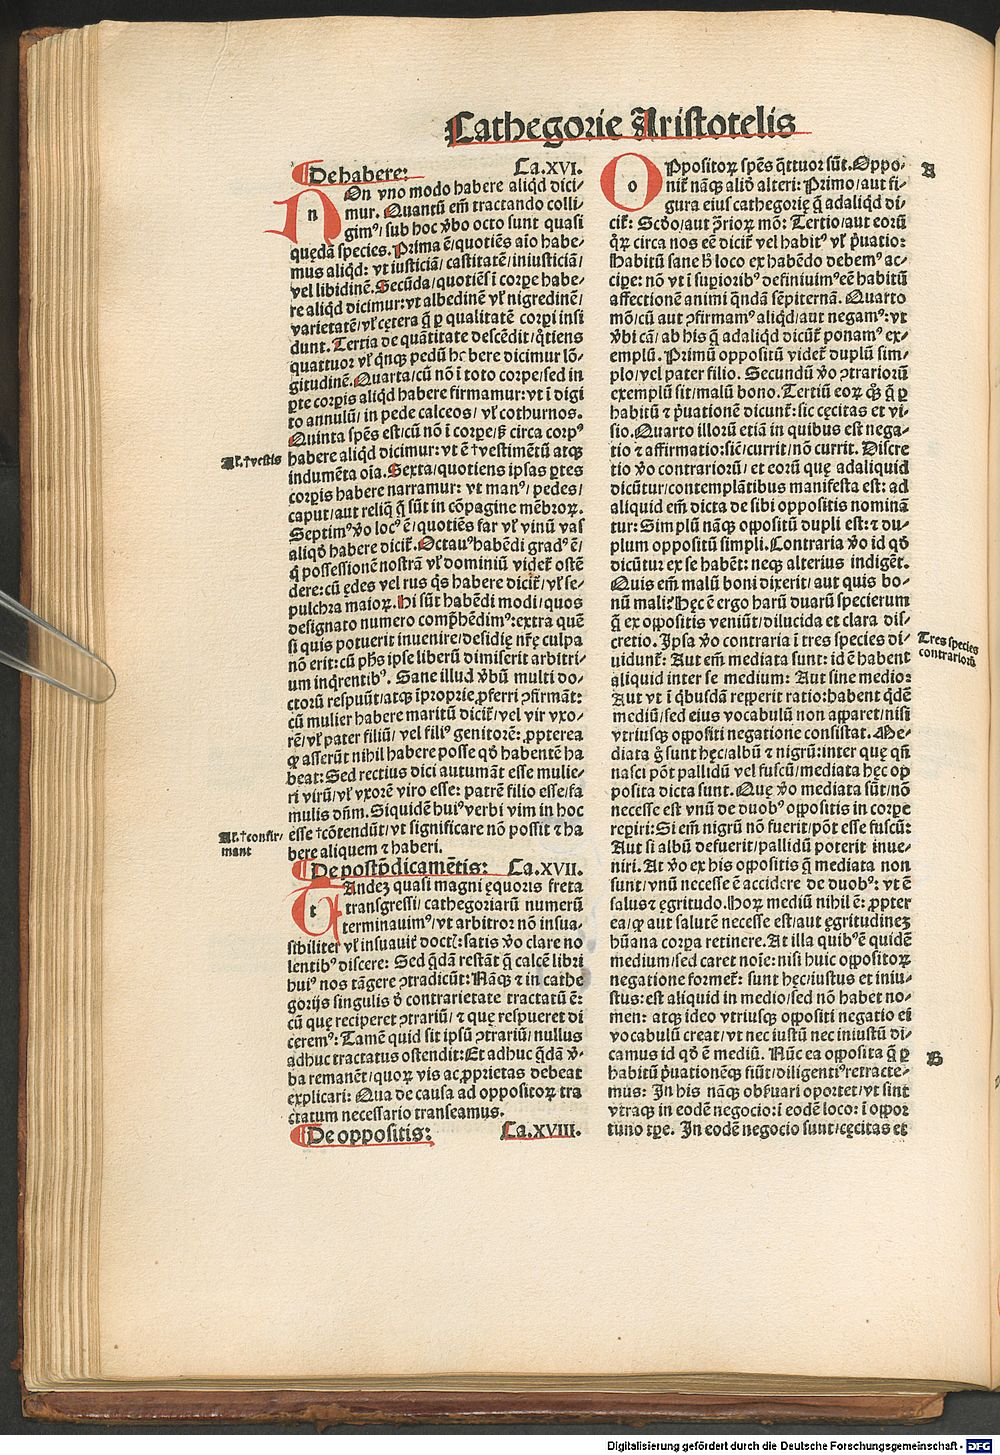 Cathegorie Aristotelis
De habere: Ca.XVI.
NOn vno modo habere aliqd dici-
mur. Quantū em̄ tractando colli
gimꝰ/ sub hoc v̄bo octo sunt quasi
quędā species. Prima ē/quotiēs aio habe-
mus aliqd: vt iusticiā/ castitatē/iniusticiā/
vel libidinē. Secūda/quotiēs ī corꝑe habe-
re aliqd dicimur: vt albedinē vl̓ nigredinē/
varietatē/vl̓ cętera q̄ ꝑ qualitatē corꝑi insi
dunt. Tertia de quātitate descēdit/q̄tiens
quattuor vl̓ qnqꝫ pedū habere dicimur lō-
gitudinē. Quarta/cū nō ī toto corꝑe/sed in
ꝑte corꝑis aliqd habere firmamur: vt ī digi
to annulū/ in pede calceos/ vl̓ cothurnos.
Quinta spēs est/cū nō ī corꝑe/sꝫ circa corpꝰ
habere aliqd dicimur: vt ē †vestimētū atqꝫ
indumēta oīa. Sexta/quotiens ipsas ꝑtes
corꝑis habere narramur: vt manꝰ/ pedes/
caput/aut reliq̄ q̄ sūt in cōpagine mēbroꝝ.
Septimꝰ v̄o locꝰ ē/quotiēs far vl̓ vinū vas
aliqd̓ habere dicit̄. Octauꝰ habēdi gradꝰ ē/
q̄ possessionē nostrā vl̓ dominiū videt̄ ostē
dere: cū ędes vel rus qs̄ habere dicit̄/ vl̓ se-
pulchra maioꝝ. Hi sūt habēdi modi/quos
designato numero comp̄hēdimꝰ: extra quē
si quis potuerit inuenire/desidię nr̄ę culpa
nō erit: cū ph̄s ipse liberū dimiserit arbitri-
um inq̄rentibꝰ. Sane illud v̄bū multi do-
ctorū respuūt/atqꝫ īproprie ꝓferri ꝯfirmāt:
cū mulier habere maritū dicit̄/vel vir vxo-
rē/vl̓ pater filiū/ vel filiꝰ genitorē: ꝓpterea
ꝙ asserūt nihil habere posse qd̓ habentē ha
beat: Sed rectius dici autumāt esse mulie-
ri virū/vl̓ vxorē viro esse: patrē filio esse/fa
mulis dn̄m. Siquidē huiꝰ verbi vim in hoc
esse †cōtendūt/vt significare nō possit ⁊ ha
bere aliquem ⁊ haberi.
De postp̄dicamētis: Ca.XVII.
TAndeꝫ quasi magni ęquoris freta
transgressi/cathegoriarū numerū
terminauimꝰ/vt arbitror nō insua-
sibiliter vl̓ insuauit̄ doctꝭ: satis v̄o clare no
lentibꝰ discere: Sed q̄dā restāt q̄ calcē libri
huiꝰ nos tāgere ꝯtradicūt: Nāqꝫ ⁊ in cathe
gorijs singulis d̓ contrarietate tractatū ē:
cū quę reciperet ꝯtrariū/ ⁊ quę respueret di
cęremꝰ: Tamē quid sit ipsū ꝯtrariū/ nullus
adhuc tractatus ostendit: Et adhuc q̄dā v̄-
ba remanēt/quoꝝ vis ac ꝓprietas debeat
explicari: Qua de causa ad oppositoꝝ tra
ctatum necessario transeamus.
De oppositis: Ca.XVIII.
OPpositoꝝ spēs q̄ttuor sūt. Oppo-
nit̄ nāqꝫ aliud̓ alteri: Primo/aut fi-
gura eius cathegorię q̄ adaliqd di-
cit̄: Scd̓o/aut ꝯ̄rioꝝ mō: Tertio/aut eorū
q̄ꝝ circa nos eē dicit̄ vel habitꝰ vl̓ p̄uatio:
Habitū sane hͦ loco ex habēdo debemꝰ ac-
ciꝑe: nō vt ī suꝑioribꝰ definiuimꝰ eē habitū
affectionē animi q̄ndā sēpiternā. Quarto
mō/cū aut ꝯfirmamꝰ aliqd/aut negamꝰ: vt
v̄bi cā/ ab his q̄ adaliqd dicūt̄ ponamꝰ ex-
emplū. Primū oppositū videt̄ duplū sim-
plo/vel pater filio. Secundū v̄o ꝯtrariorū
exemplū sit/malū bono. Tertiū eoꝝ qꝫ q̄ ꝑ
habitū ⁊ p̄uationē dicunt̄: sic cęcitas et vi-
sio. Quarto illorū etiā in quibus est nega-
tio ⁊ affirmatio: sic/currit/nō currit. Discre
tio v̄o contrariorū/ et eorū quę adaliquid
dicūtur/contemplātibus manifesta est: ad
aliquid em̄ dicta de sibi oppositis nominā
tur: Simplū nāqꝫ oppositū dupli est: ⁊ du-
plum oppositū simpli. Contraria v̄o id qd̓
dicūtur ex se habēt: neqꝫ alterius indigēt.
Quis em̄ malū boni dixerit/ aut quis bo-
nū mali? Hęc ē ergo harū duarū specierum
q̄ ex oppositis veniūt/dilucida et clara dis-
cretio. Ipsa v̄o contraria ī tres species di-
uidunt̄: Aut em̄ mediata sunt: id ē habent
aliquid inter se medium: Aut sine medio:
Aut vt ī qbusdā reꝑerit ratio: habent qdē
mediū/sed eius vocabulū non apparet/nisi
vtriusqꝫ oppositi negatione consistat. Me-
diata g̊ sunt hęc/albū ⁊ nigrū: inter quę qn̄
nasci pōt pallidū vel fuscū/mediata hęc op
posita dicta sunt. Quę v̄o mediata sūt/nō
necesse est vnū de duobꝰ oppositis in corꝑe
reꝑiri: Si em̄ nigrū nō fuerit/pōt esse fuscū:
Aut si albū defuerit/pallidū poterit inue-
niri. At v̄o ex his oppositis q̄ mediata non
sunt/vnū necesse ē accidere de duobꝰ: vt ē
salus ⁊ ęgritudo. Hoꝝ mediū nihil ē: ꝓpter
ea/ꝙ aut salutē necesse est/aut ęgritudineꝫ
hūana corꝑa retinere. At illa quibꝰ ē quidē
medium/sed caret noīe: nisi huic oppositoꝝ
negatione formet̄: sunt hęc/iustus et iniu-
stus: est aliquid in medio/sed nō habet no-
men: atqꝫ ideo vtriusqꝫ oppositi negatio ei
vocabulū creat/vt nec iustū nec iniustū di-
camus id qd̓ ē mediū. Nūc ea opposita q̄ ꝑ
habitū p̄uationēqꝫ fiūt/diligentiꝰ retracte-
mus: In his nāqꝫ obẜuari oportet/vt sint
vtraqꝫ in eodē negocio: ī eodē loco: ī oppor
tuno tꝑe. In eodē negocio sunt/cęcitas et
Al̓.†vestis
Al̓.†confir-
mant
A
Tres species
contrariorū
B
Digitalisierung gefördert durch die Deutsche Forschungsgemeinschaft - DFG